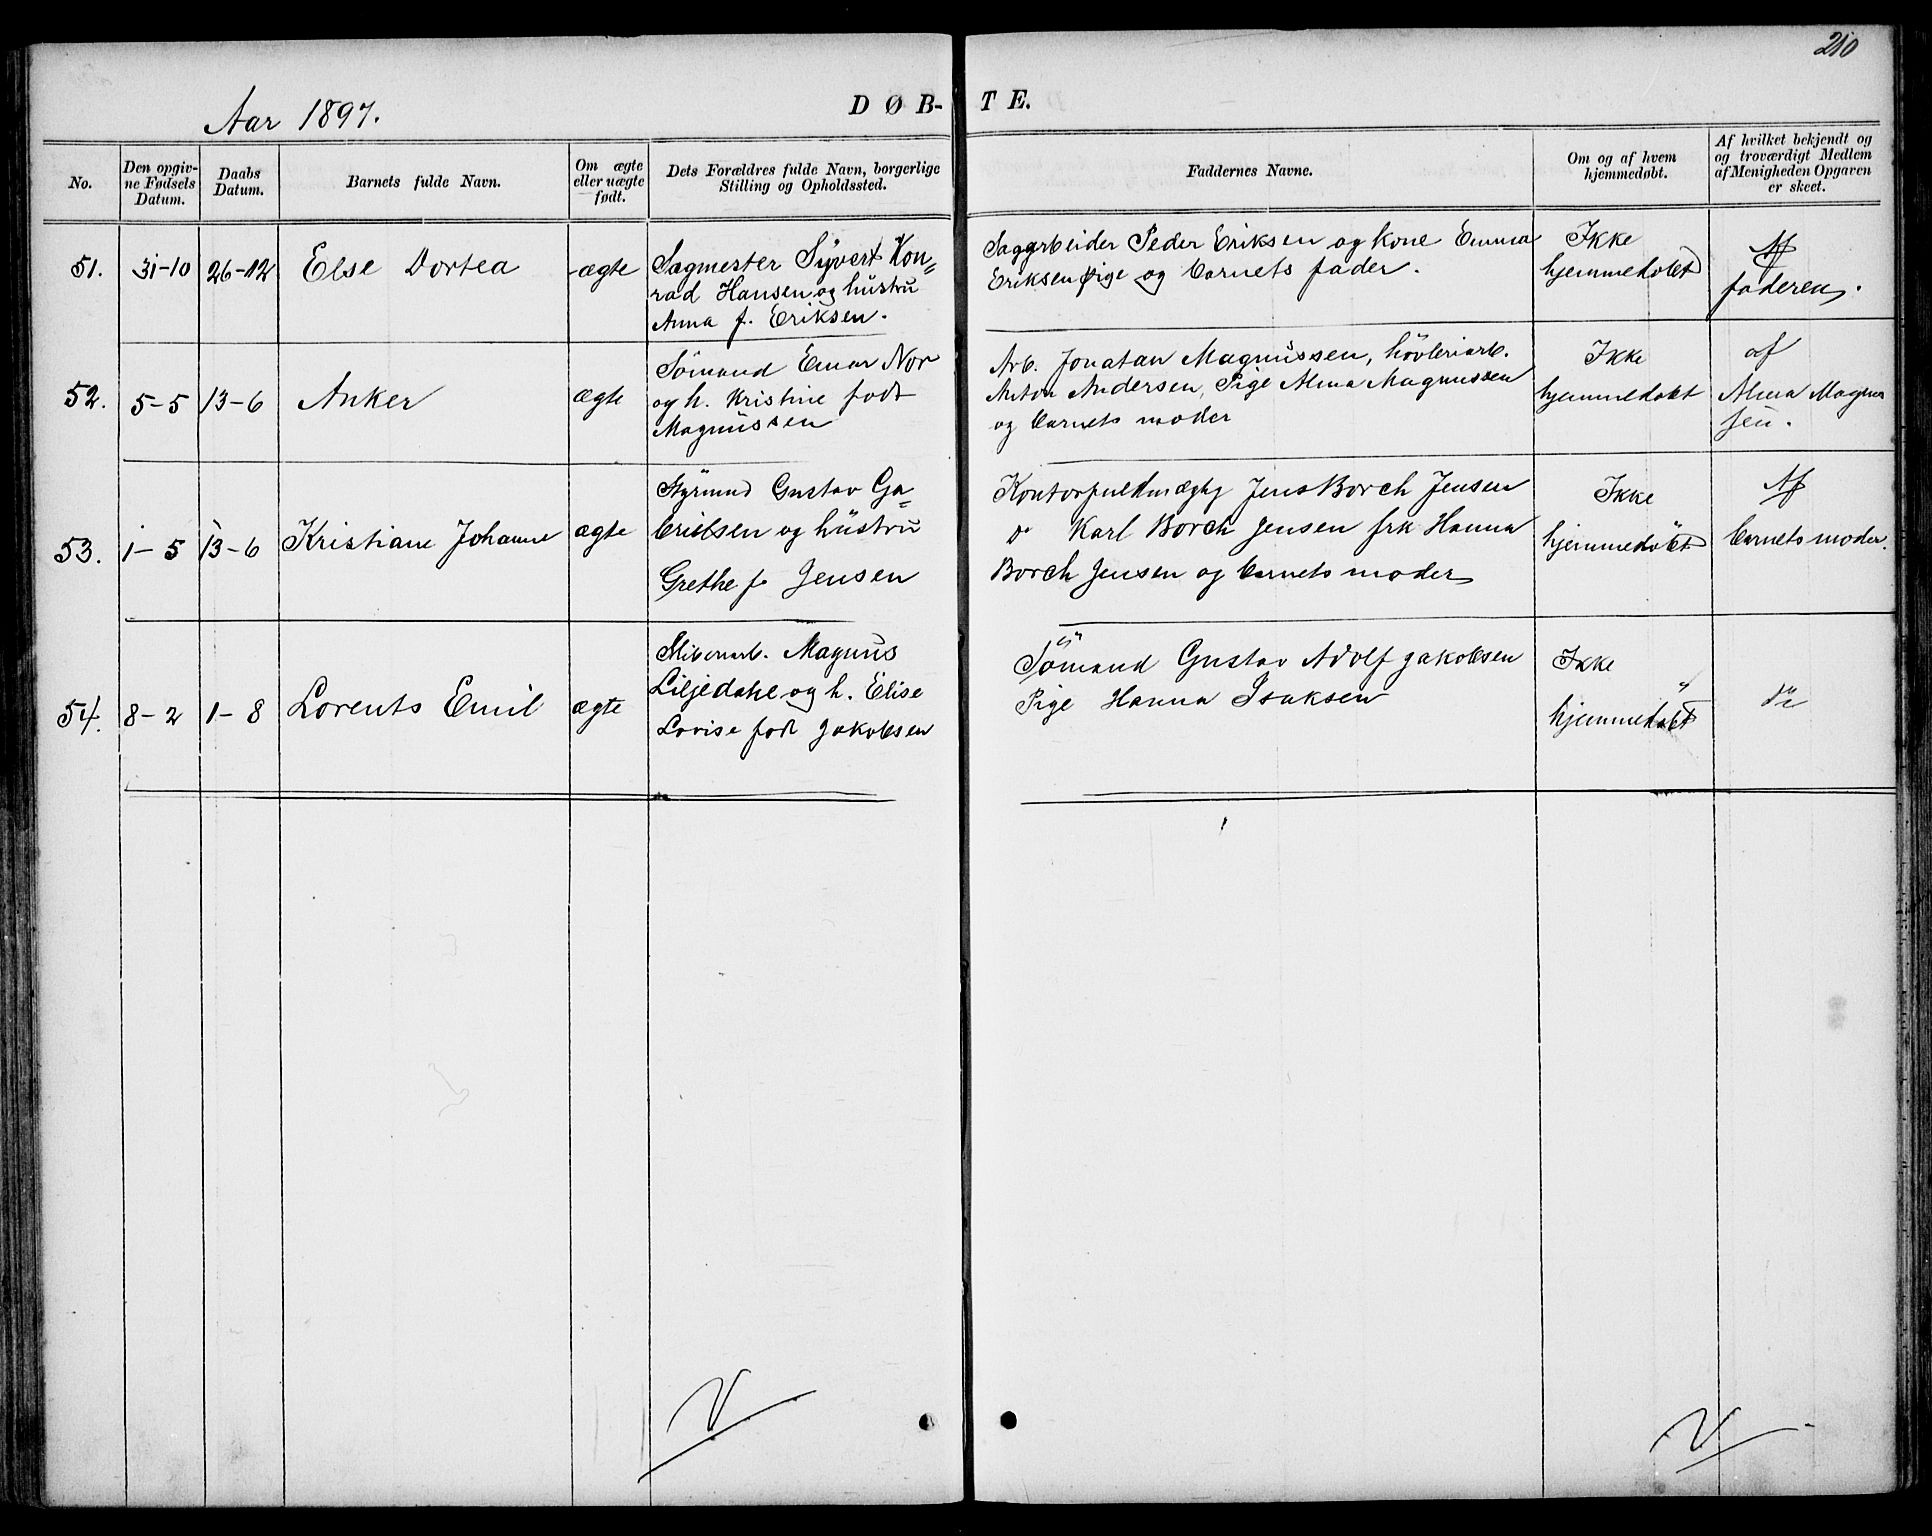 210
Aar 1897.
DØB-
TE.
No.
Den opgiv-
ne Fødsels
Datum.
Daabs
Datum.
Barnets fulde Navn.
Om ægte
eller uægte
født.
Dets Forældres fulde Navn, borgerlige
Stilling og Opholdssted.
Faddernes Navne.
Om og af hvem
hjemmedøbt.
Af hvilket bekjendt og
og troværdigt Medlem
af Menigheden Opgaven
er skeet.
51.
31-10
26-12
Else Dortea
ægte
Sagmester Syvert Kon=
rad Hansen og hustru
Anna f. Eriksen.
Sagarbeider Peder Eriksen og kone Emma
Eriksen Øige og barnets fader.
Ikke
hjemmedøbt
Af
faderen.
52.
5-5
13-6
Anker
ægte
Sömand Einar Nor
og h. Kristine född
Magnussen
Arb. Jonatan Magnussen, hövleriarb.
Anton Andersen, Pige Alma Magnussen
og barnets moder
Ikke
hjemmedøbt
af
Alma Magnus
sen.
53.
1-5
13-6
Kristiane Johanne
ægte
Styrmand Gustav Ga=
brielsen og hustru
Grethe f. Jensen
Kontorfuldmægtig Jens Borch Jensen
do Karl Borch Jensen frk Hanna
Borch Jensen og barnets moder
Ikke
hjemmedøbt
Af
barnets moder.
54.
8-2
1-8
Lorents Emil
ægte
Sliberiarb. Magnus
Liljedahl og h. Elise
Lovise född Jakobsen
Sömand Gustav Adolf Jakobsen
Pige Hanna Isaksen
Ikke
hjemmedøbt
do